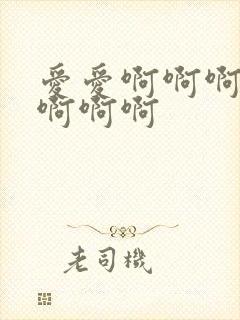 爱爱啊啊啊
啊啊啊
老司機